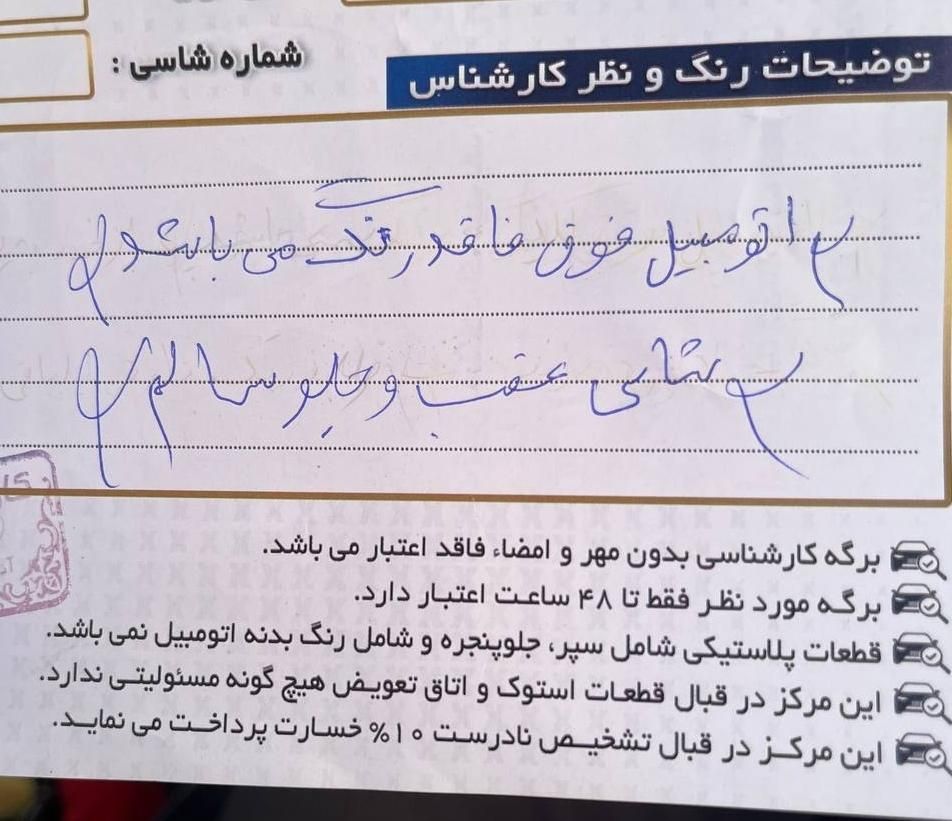 شماره شاسی :
توضیحات رنگ و نظر کارشناس
اتومبیل فوق فاقد رنگ می باشد
شاسی عقب و جلو سالم
برگه کارشناسی بدون مهر و امضاء فاقد اعتبار می باشد.
برگه مورد نظر فقط تا ۴۸ ساعت اعتبار دارد.
قطعات پلاستیکی شامل سپر، جلوپنجره و شامل رنگ بدنه اتومبیل نمی باشد.
این مرکز در قبال قطعات استوک و اتاق تعویض هیچ گونه مسئولیتی ندارد.
این مرکز در قبال تشخیص نادرست ۱۰% خسارت پرداخت می نماید.